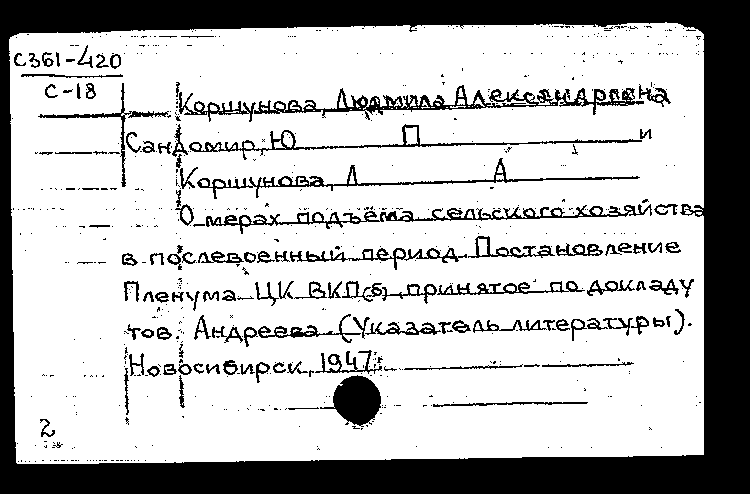 С361-420
С-18
Коршунова, Людмила Александровна
Сандомир, Ю П и
Коршунова, Л А
О мерах подъёма сельского хозяйства
в послевоенный период. Постановление
Пленума ЦК ВКП(б), принятое по докладу
тов. Андреева. (Указатель литературы).
Новосибирск, 1947.
2